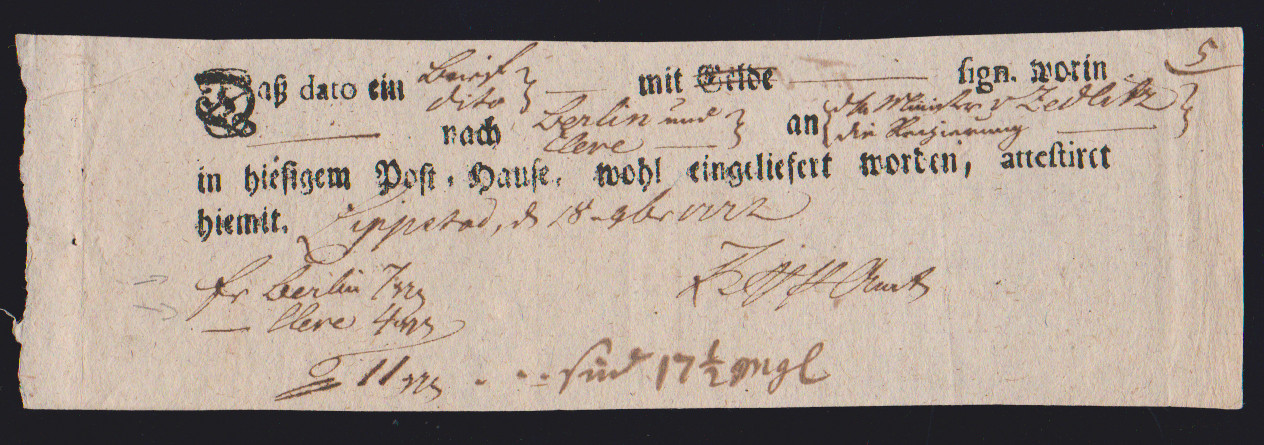 5
Daß dato ein Brief / dito mit Gelde sign. worin
nach Berlin und / Cleve an die Regierung v Zedlitz
in hiesigem Post-Hause, wohl eingeliefert worden, attestiret
hiemit. Lippstad, d 18 9br
fr Berlin 7
— Cleve 4
11 ... sind 17 1/2 mgl